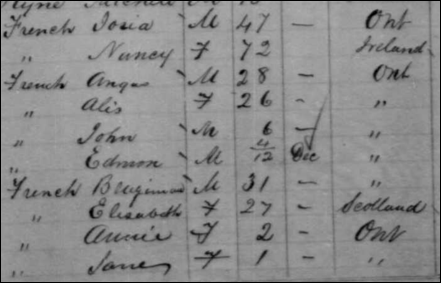 French Josia M 47 — Ont
" Nancy F 72 Ireland
French Angus M 28 — Ont
" Alis F 26 - "
" John M 6 — "
" Edmon M 4/12 Dec "
French Benjiman M 31 - "
" Elisabeth F 27 - Scotland
" Annie F 2 - Ont
" Jane F 1 - "